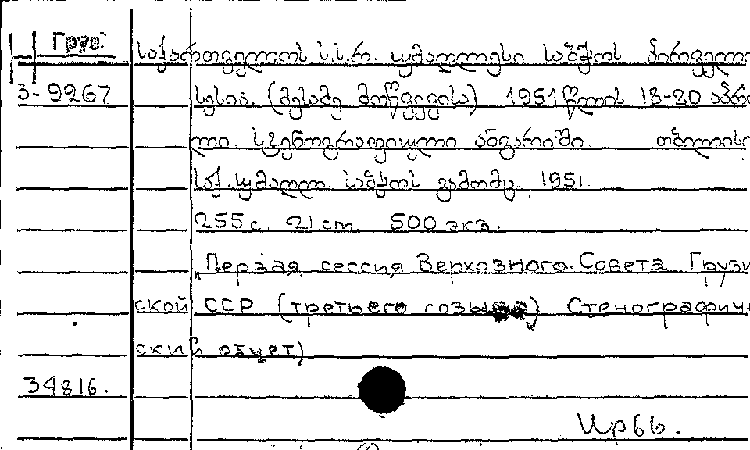 Груз.
საქართველოს ს.ს.რ. უმაღლესი საბჭოს პირველი
3-9267 სესია. (მესამე მოწვევისა) 1951 წლის 18-20 აპრი
ლი. სტენოგრაფიული ანგარიში. თბილისი
საქ. უმაღლ. საბჭოს გამომც. 1951.
255 с. 21 cm. 500 экз.
(Первая сессия Верховного Совета Грузин
ской ССР (третьего созыва) Стенографиче
ский отчет)
34816.